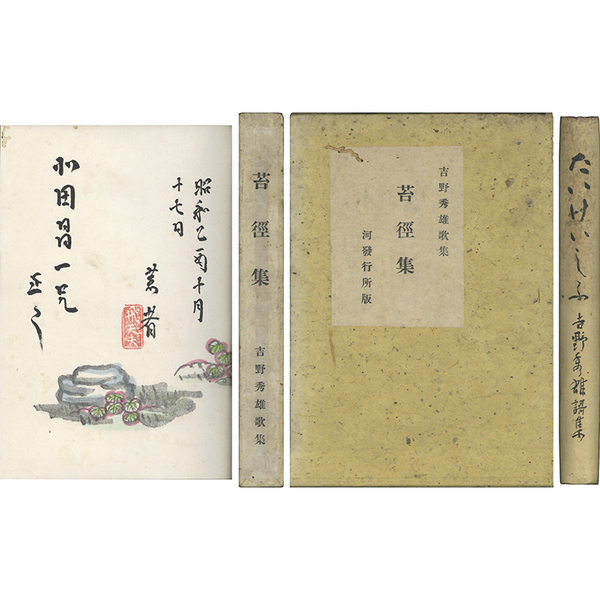 昭和乙酉十月
十七日
著者
和田昌一兄
苔徑集
吉野秀雄歌集
吉野秀雄歌集
苔徑集
河發行所版
たいけいしふ
吉野秀雄謌集